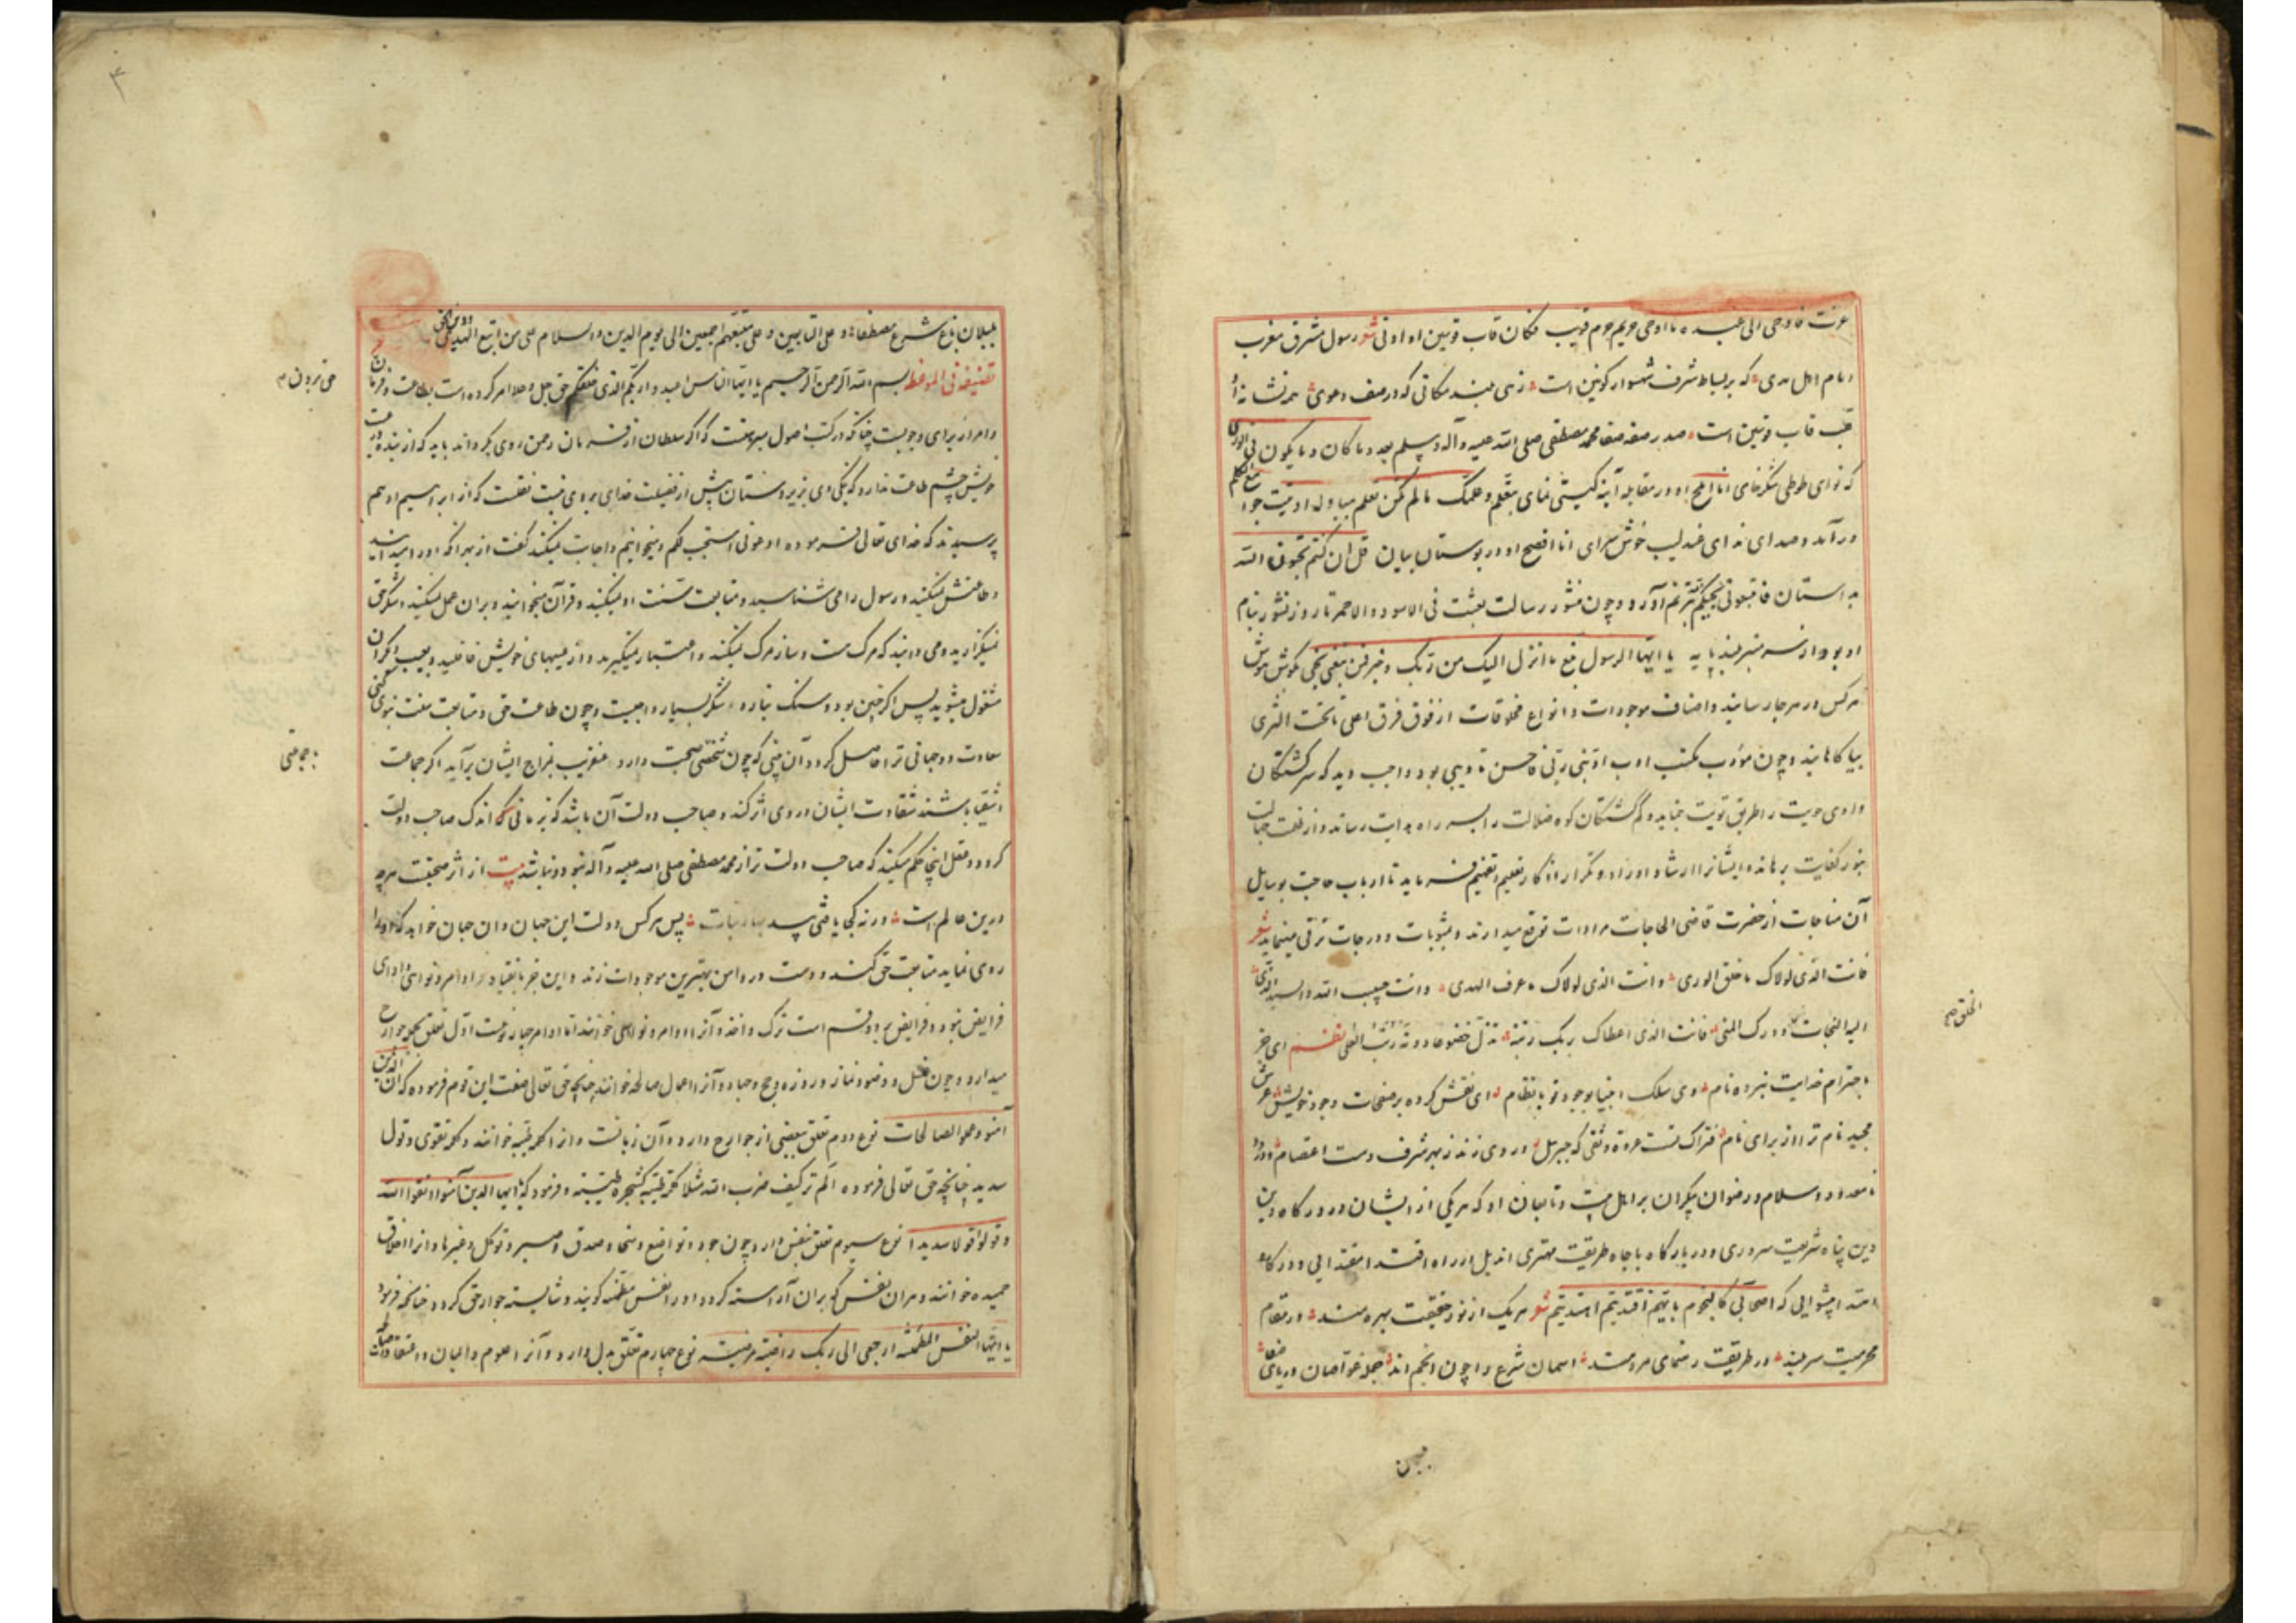 عزت فاوحی الی عبده ما اوحی حریم حرم قریب فکان قاب قوسین او ادنی شعر رسول مشرق مغرب
امام اهل هدی که بر بساط شرف شهسوار کونین است زهی بلند مکانی که در صف دعوی
قاب قوسین است صدر صفه صفا محمد مصطفی صلی الله علیه وآله وسلم بعدد ما کان وما یکون فی الوری
که نوای طوطی شکرخای انا املح او در مقابله آینه کیتی نمای وعلمک ما لم تکن تعلم
درآمد وصدای ندای عندلیب خوش سرای انا افصح او در بوستان بیان قل ان کنتم تحبون الله
فاتبعونی یحببکم ترنم آورد وچون منشور رسالت بعثت فی الاسود والاحمر تا روز نشور بنام
او بود از سر منبر بلند پایه یا ایها الرسول بلغ ما انزل الیک من ربک وخبر بکوش هوش
هر کس در هر جا رسانید واصناف موجودات وانواع مخلوقات از فوق فرق اعلی تا تحت الثری
بیاکاهانید وچون مؤدب مکتب ادب ادبنی ربی فاحسن تادیبی بود واجب دید که سرکشتکان
وادی را طریق نماید وکم کشتکان کوه ضلالت را بسر راه هدایت رساند واز
بنور کفایت برهاند وایشانرا ارشاد اوراد وتکرار اذکار تعلیم وتفهیم فرماید تا ارباب حاجت بوسایل
آن مناجات از حضرت قاضی الحاجات مرادات توقع میدارند ومثوبات ودرجات ترقی مینماید شعر
فانت الذی لولاک ما خلق الوری وانت الذی لولاک ما عرف الهدی وانت حبیب الله والسید الذی
الیه النجات ودرک المنی فانت الذی اعطاک ربک رتبة تذل خضوعا دونه رتب العلی نظم ای جز
باحترام خدایت نبرده نام وی سلک انبیا بوجود تو بانظام ای نقش کرده بر صفحات وجود خویش عرش
مجید نام ترا از برای نام فتراک تست عروه وثقی که جبرئیل در وی زند ز بهر شرف دست اعتصام
نامعدود وسلام ورضوان بیکران بر اهل بیت وتابعان او که هر یکی از ایشان در درکاه
دین پناه شریعت سروری ودر بارکاه باجاه طریقت مهتری اند بل از راه اقتدا مقتدایی ودر کاه
اهتدا پیشوایی که اصحابی کالنجوم بایهم اقتدیتم اهتدیتم شعر هر یک از نور حقیقت بهره مند در مقام
محرمیت سربلند در طریقت رهنمای مردمند آسمان شرع را چون انجم اند جمله غواصان دریای صفا
الخلق صح
بلبلان باغ شرع مصطفا وعلی التابعین وعلی متبعهم اجمعین الی یوم الدین والسلام علی من اتبع الهدی
تصنیفه فی الموعظ بسم الله الرحمن الرحیم یا ایها الناس اعبدوا ربکم الذی خلقکم حق جل وعلا امر کرده است بطاعت وفرمان
وامر از برای وجوبست چنانکه در کتب اصول است که اکر سلطان از فرمان رحمن روی بکرداند باید که از بنده
خویش چشم طاعت ندارد که نیکویی زیردستان پیش از فضیلت خدای بر وی نقلست که از ابراهیم ادهم
پرسیدند که خدای تعالی فرموده ادعونی استجب لکم میخوانیم واجابت نمیکند کفت از بهر آنکه او را میدانید
وطاعتش نمیکنید ورسول را می شناسید ومتابعت سنت او نمیکنید وقرآن میخوانید وبر آن عمل نمیکنید شکر حق
نمیکزارید ومی دانید که مرک هست وساز مرک نمیکنید واعتبار نمیکیرید واز عیبهای خویش غافلید وبعیب دیکران
مشغول میشوید پس اکر چنین بود وسنک نبارد شکر بسیار واجبست وچون طاعت حق ومتابعت سنت نبوی کنی
سعادت دوجهانی ترا حاصل کردد آن نبینی که چون شخصی صحبت دارد عنقریب بمزاج ایشان برآید اکر جماعت
اشقیا باشند شقاوت ایشان در وی اثر کند وصاحب دولت آن باشد که بزمانی که اندک صاحب دولت
کردد وعقل اینجا حکم میکند که صاحب دولت تر از محمد مصطفی صلی الله علیه وآله نبود ونباشد بیت از اثر صحبتست هرچه
درین عالم است ورنه کجا یافتی بید بهار نبات پس هر کس دولت این جهان وآن جهان خواهد که او را
روی نماید متابعت حق کند ودست در دامن بهترین موجودات زند واین جز بانقیاد اوامر ونواهی وادای
فرایض نبود وفرایض بر دو قسم است ترک واخذ وآنرا اوامر ونواهی خوانند اما اوامر چهار نوعست اول تعلق بجمله جوارح
میدارد وچون غسل ووضو ونماز وروزه وحج وجهاد وآنرا اعمال صالحه خوانند چنانچه حق تعالی صفت این قوم فرموده که ان الذین
آمنوا وعملوا الصالحات نوع دوم تعلق ببعضی از جوارح دارد وآن زبانست وآنرا کلمه طیبه خوانند وکلمه تقوی وقول
سدید چنانچه حق تعالی فرموده الم تر کیف ضرب الله مثلا کلمة طیبة کشجرة طیبة وفرمود که یا ایها الذین آمنوا اتقوا الله
وقولوا قولا سدیدا نوع سیوم تعلق بنفس دارد چون جود وتواضع وسخا وصدق وصبر وتوکل وغیرها وآنرا اخلاق
حمیده خوانند وهر آن نفس که بر آن آراسته کردد او را نفس مطمئنه کویند وشایسته جوار حق کردد چنانکه فرمود
یا ایتها النفس المطمئنة ارجعی الی ربک راضیة مرضیة نوع چهارم تعلق بدل دارد وآنرا علوم وایمان واعتقادات